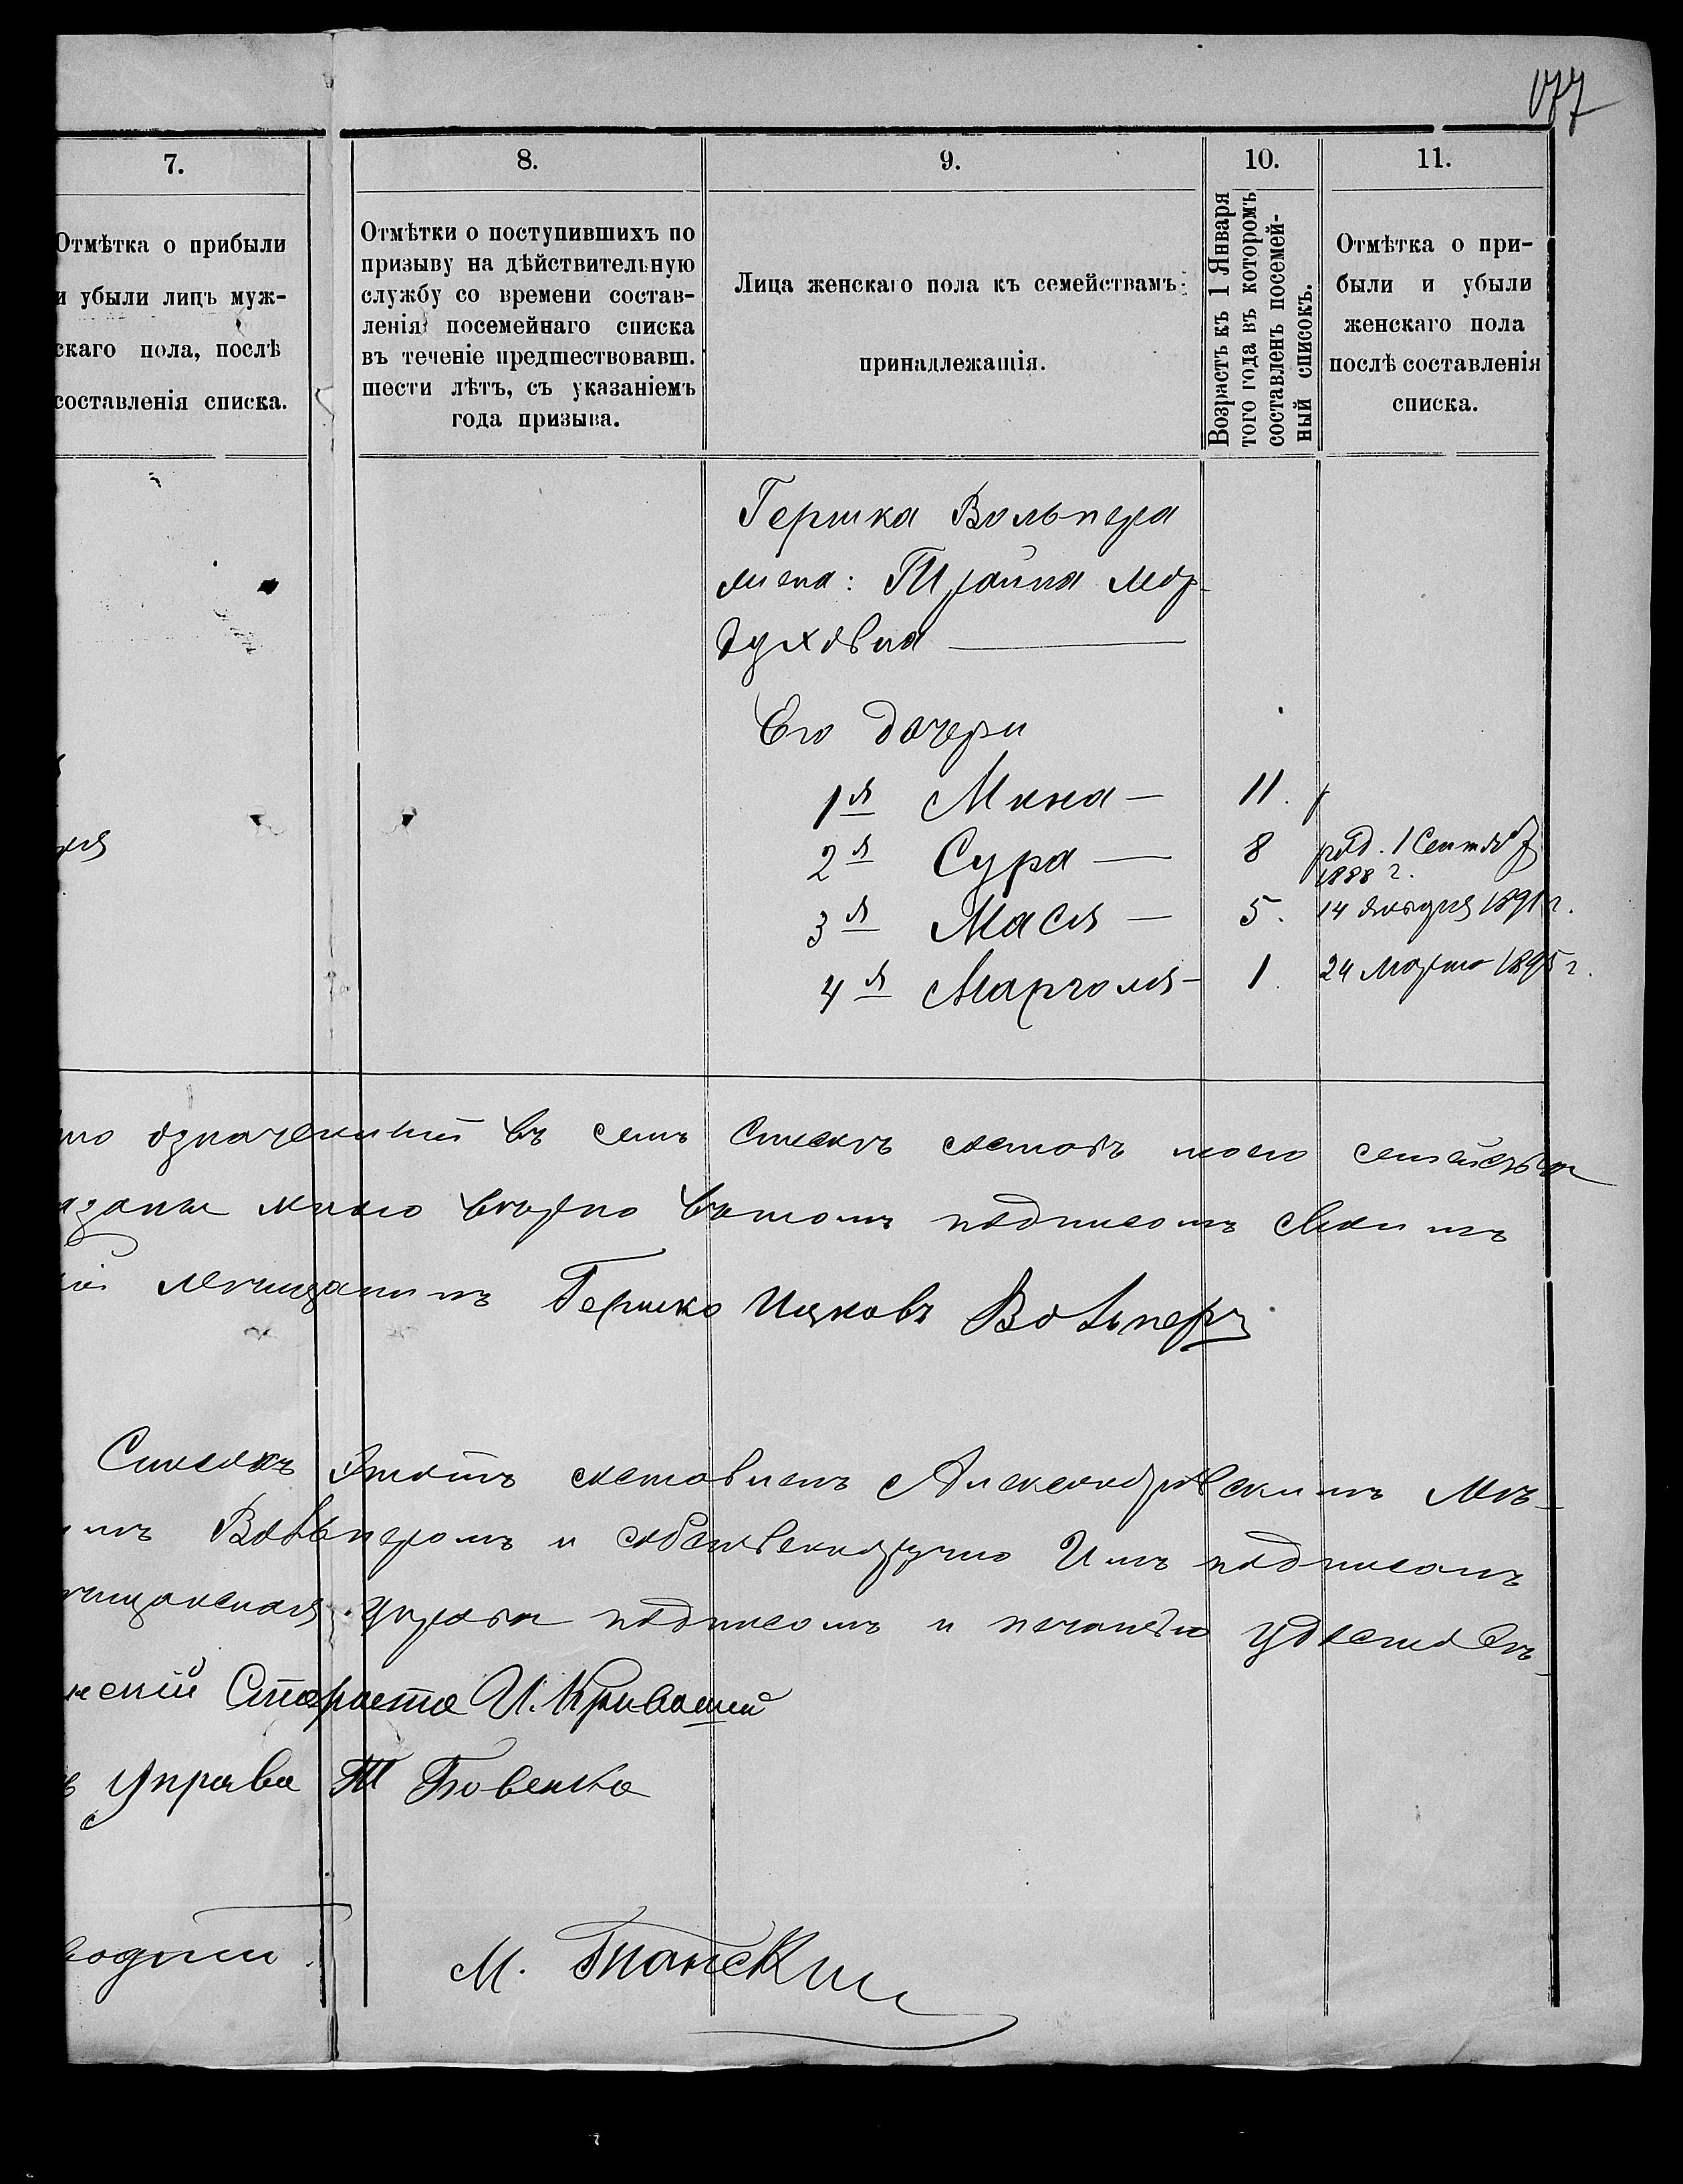 177
7.
8.
9.
10.
11.
Отмѣтка о прибыли
и убыли лицъ муж-
скаго пола, послѣ
составленія списка.
Отмѣтки о поступившихъ по
призыву на дѣйствительную
службу со времени состав-
ленія посемейнаго списка
въ теченіе предшествовавш.
шести лѣтъ, съ указаніемъ
года призыва.
Лица женскаго пола къ семействамъ
принадлежащія.
Возрастъ къ 1 Января
того года въ которомъ
составленъ посемей-
ный списокъ.
Отмѣтка о при-
были и убыли
женскаго пола
послѣ составленія
списка.
Гершка Вольпера
жена: Трайна Мор-
духовна
Его дочери
1я Мина — 11.
2я Сура — 8 род. 1 Сентяб
1888 г.
3я Мася — 5. 14 Января 1891 г.
4я Марголя — 1. 24 Марта 1895 г.
означенный въ семъ спискѣ составъ моего семейства
мною вѣрно въ томъ подписомъ своимъ
мѣщанинъ Гершко Ицковъ Вольперъ
Списокъ этотъ составленъ Александровскимъ Мѣ-
Вольперомъ и собственноручно имъ подписанъ
управа подписомъ и печатью удостовѣ-
Староста И. Кривошей
Управа Т Бовенко
М.